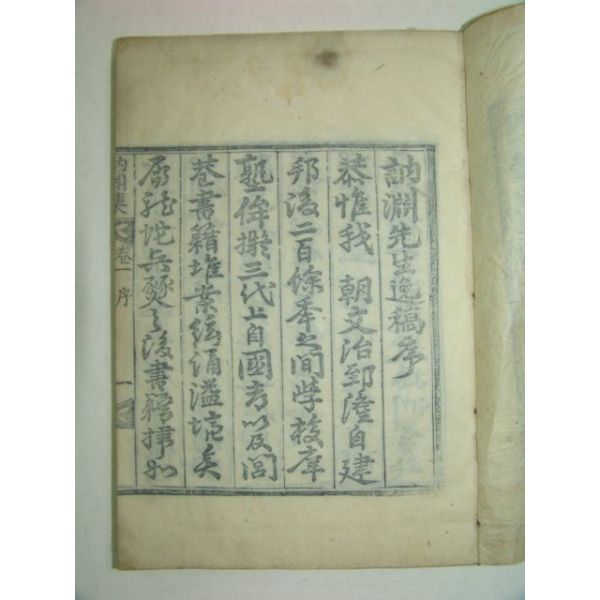 訥淵先生逸稿序
恭惟我 朝文治郅隆自建
邦後二百餘年之間學校庠
塾侔擬三代上自國考以及閭
巷書籍堆業絃誦溢
龍蛇兵燹之後書籍
淵集 卷一 序 一